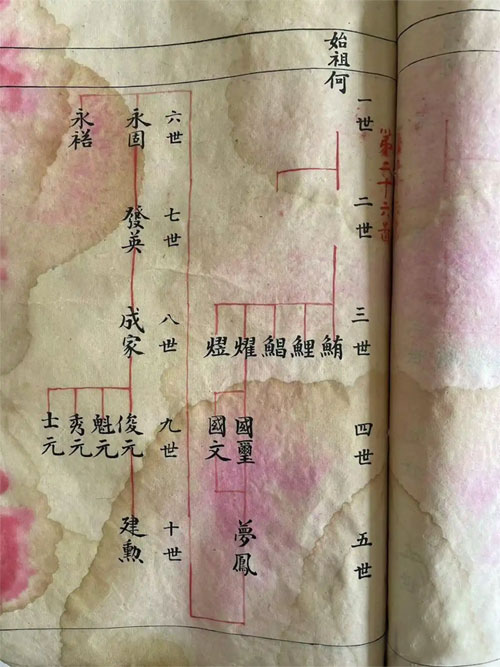 始祖何
一世
二世
三世
鮪 鯉 鯧 燿 熤
四世
國璽 國文
五世
夢鳳
六世
永固 永禧
七世
發英
八世
成家
九世
俊元 魁元 秀元 士元
十世
建勲